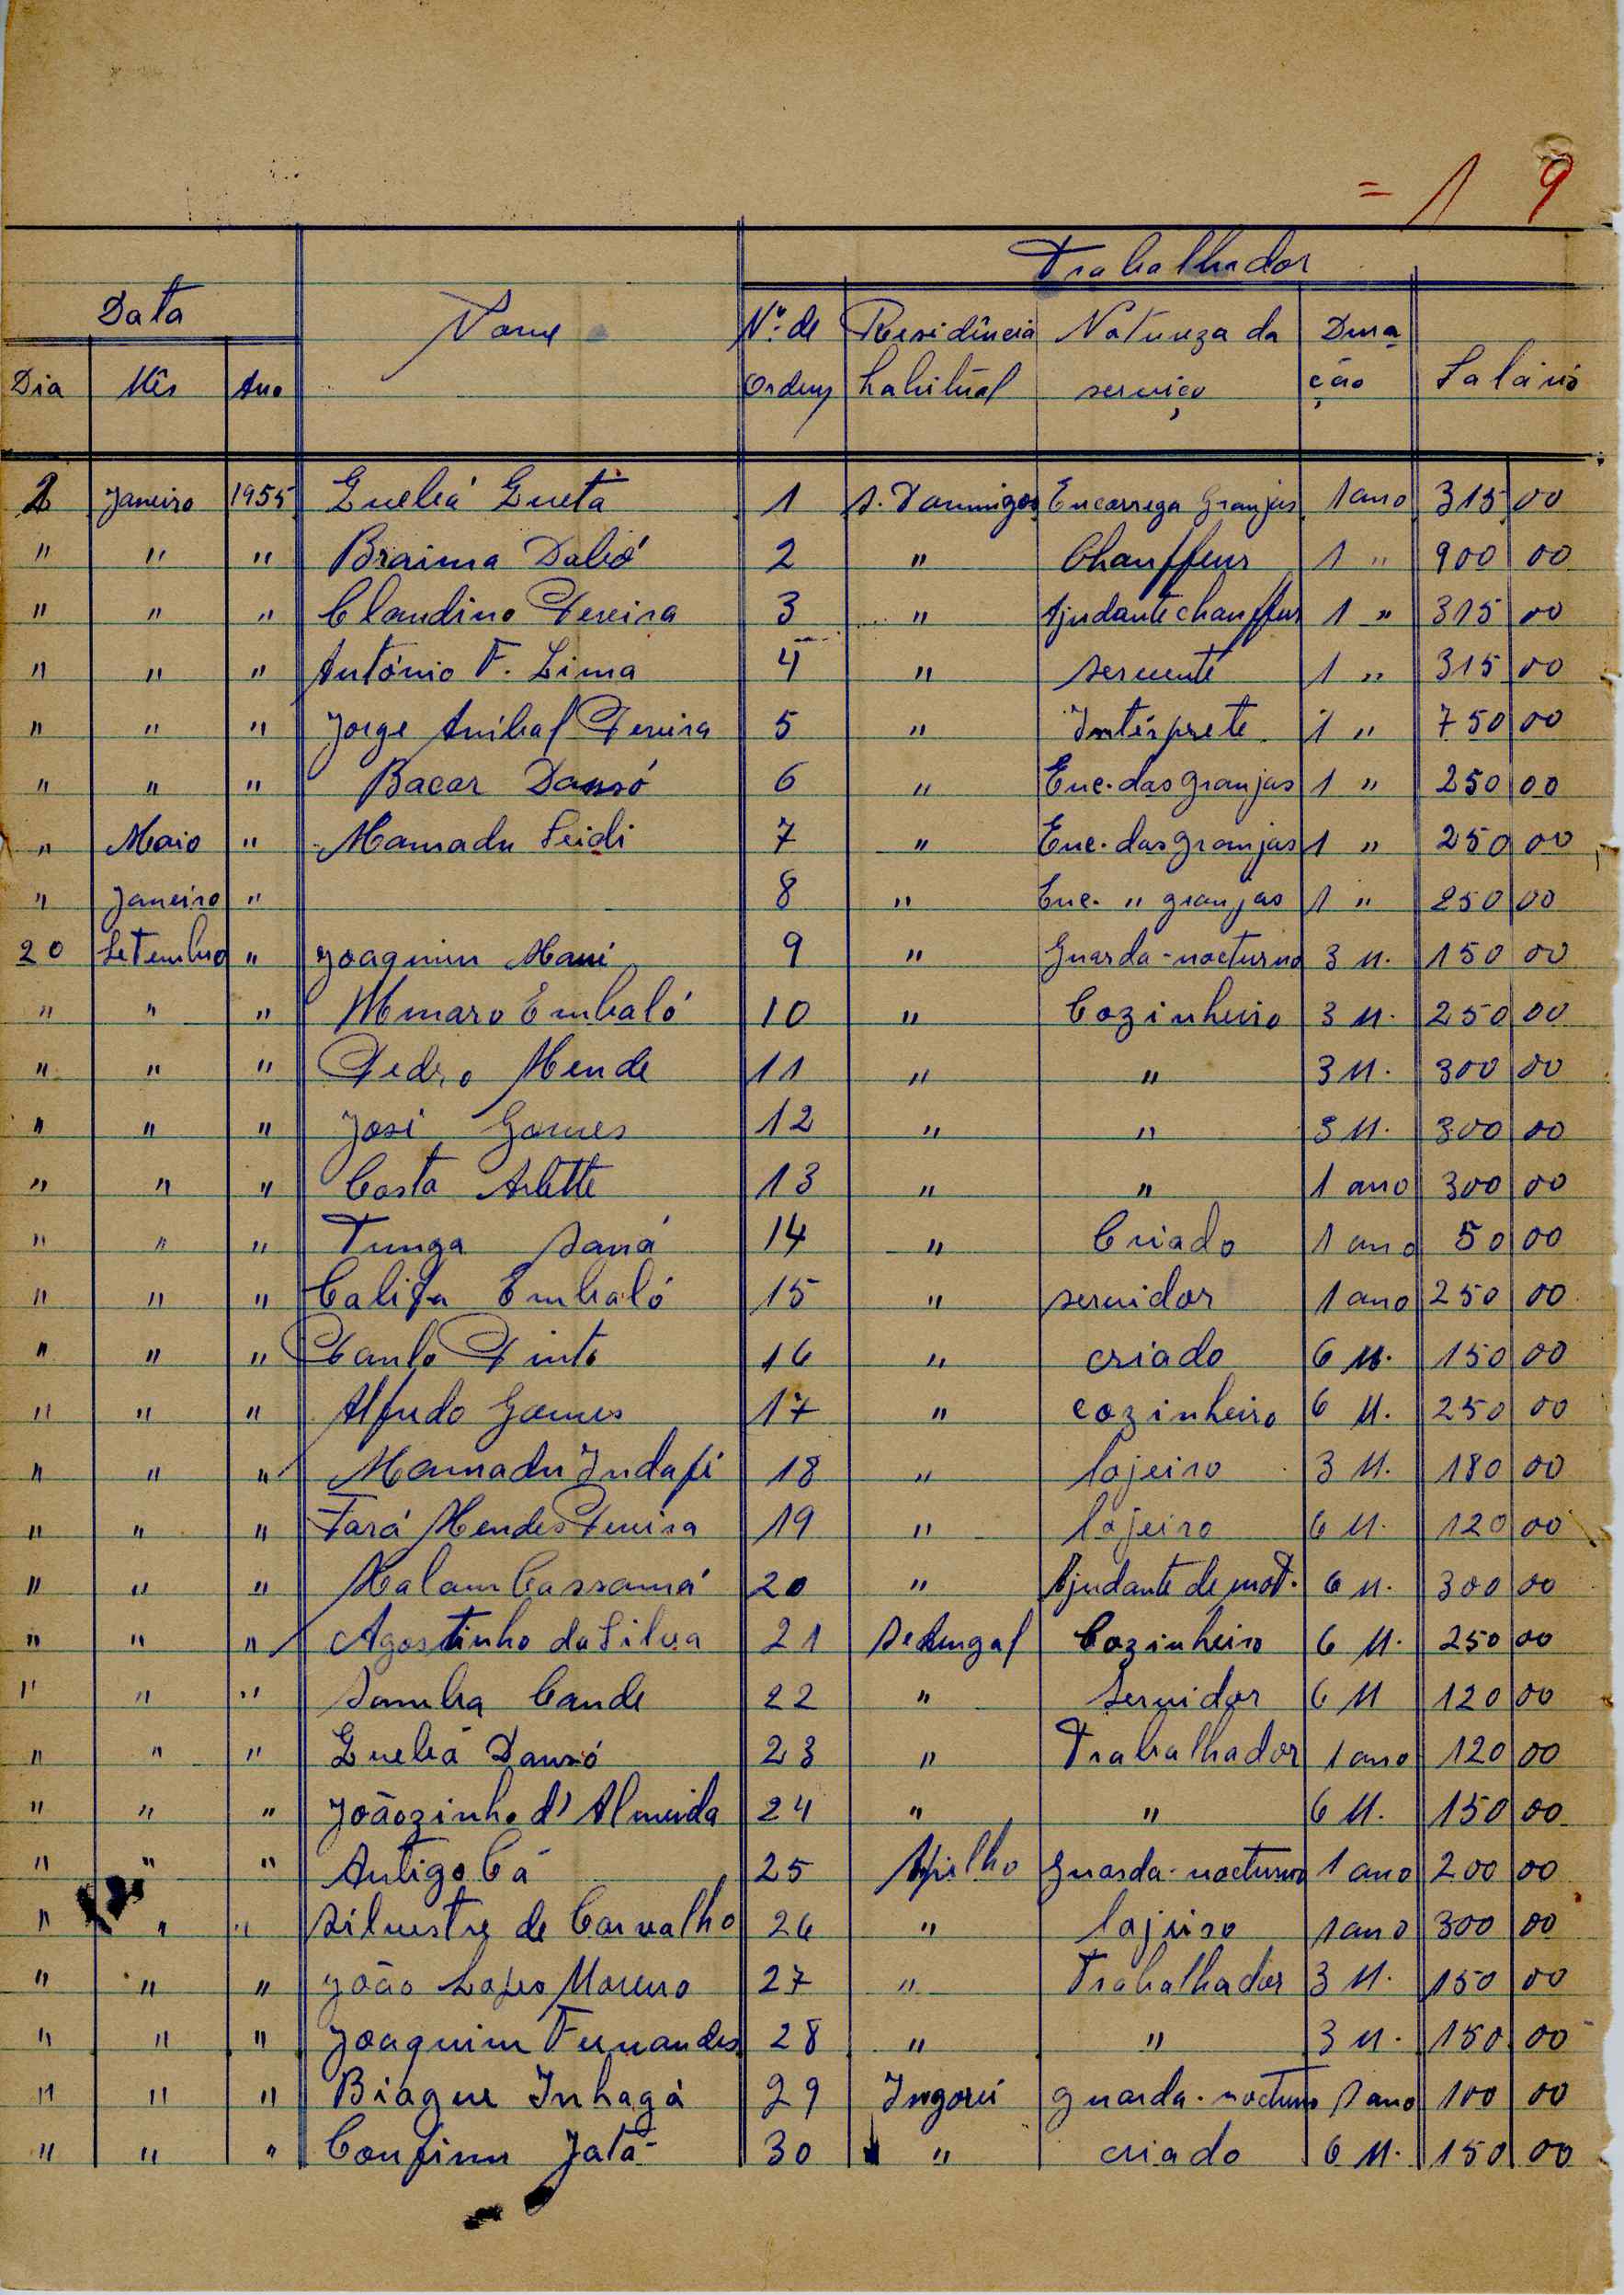 = 1 9
Trabalhador
Data Nome Nº de Residência Natureza da Dura
Dia Mês Ano Ordem habitual serviço ção Salário
1 Janeiro 1955 Quebá Queta 1 S. Domingos Encarrega Granjas 1 ano 315 00
" " " Braima Dabó 2 " Chauffeur 1 " 900 00
" " " Claudino Pereira 3 " Ajudante chauffeur 1 " 315 00
" " " António F. Lima 4 " servente 1 " 315 00
" " " Jorge Aníbal Pereira 5 " Intérprete 1 " 750 00
" " " Bacar Dansó 6 " Enc. das granjas 1 " 250 00
" Maio " Mamadu Seidi 7 " Enc. das granjas 1 " 250 00
" Janeiro " 8 " Enc. " granjas 1 " 250 00
20 Setembro " Joaquim Mané 9 " Guarda-nocturno 3 M. 150 00
" " " Umaro Embaló 10 " Cozinheiro 3 M. 250 00
" " " Pedro Mende 11 " " 3 M. 300 00
" " " José Gomes 12 " " 3 M. 300 00
" " " Costa Arlette 13 " " 1 ano 300 00
" " " Tunga Saná 14 " Criado 1 ano 50 00
" " " Califa Embaló 15 " servidor 1 ano 250 00
" " " Paulo Pinto 16 " criado 6 M. 150 00
" " " Alfredo Gomes 17 " cozinheiro 6 M. 250 00
" " " Mamadu Indafi 18 " lojeiro 3 M. 180 00
" " " Fará Mendes Pereira 19 " lojeiro 6 M. 120 00
" " " Malam Cassamá 20 " Ajudante de mot. 6 M. 300 00
" " " Agostinho da Silva 21 Sedengal Cozinheiro 6 M. 250 00
" " " Samba Cande 22 " Servidor 6 M 120 00
" " " Quebá Dansó 23 " Trabalhador 1 ano 120 00
" " " Joãozinho d'Almeida 24 " " 6 M. 150 00
" " " Antigo Cá 25 Apilho guarda-nocturno 1 ano 200 00
" " " Silvestre de Carvalho 26 " lojeiro 1 ano 300 00
" " " João Lopes Moreno 27 " Trabalhador 3 M. 150 00
" " " Joaquim Fernandes 28 " " 3 M. 150 00
" " " Biague Inhagá 29 Ingoré guarda-nocturno 1 ano 100 00
" " " Confinn Jatá 30 " criado 6 M. 150 00